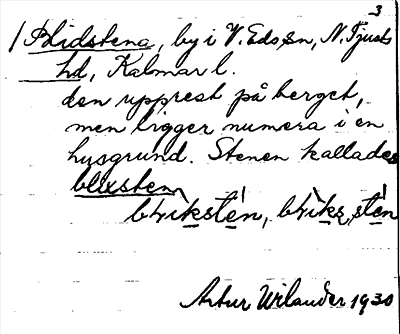 3
/ Blidstena, by i V. Eds sn, N. Tjusts
hd, Kalmar l.
den upprest på berget,
men ligger numera i en
husgrund. Stenen kallades
blixsten
Artur Wilander 1930